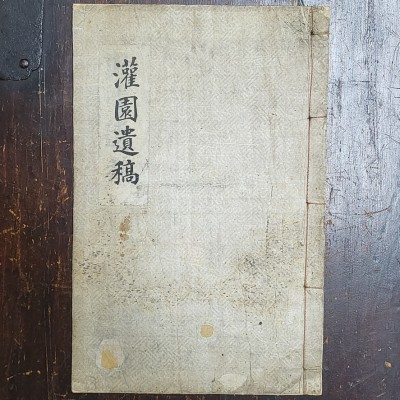 灌園遺稿